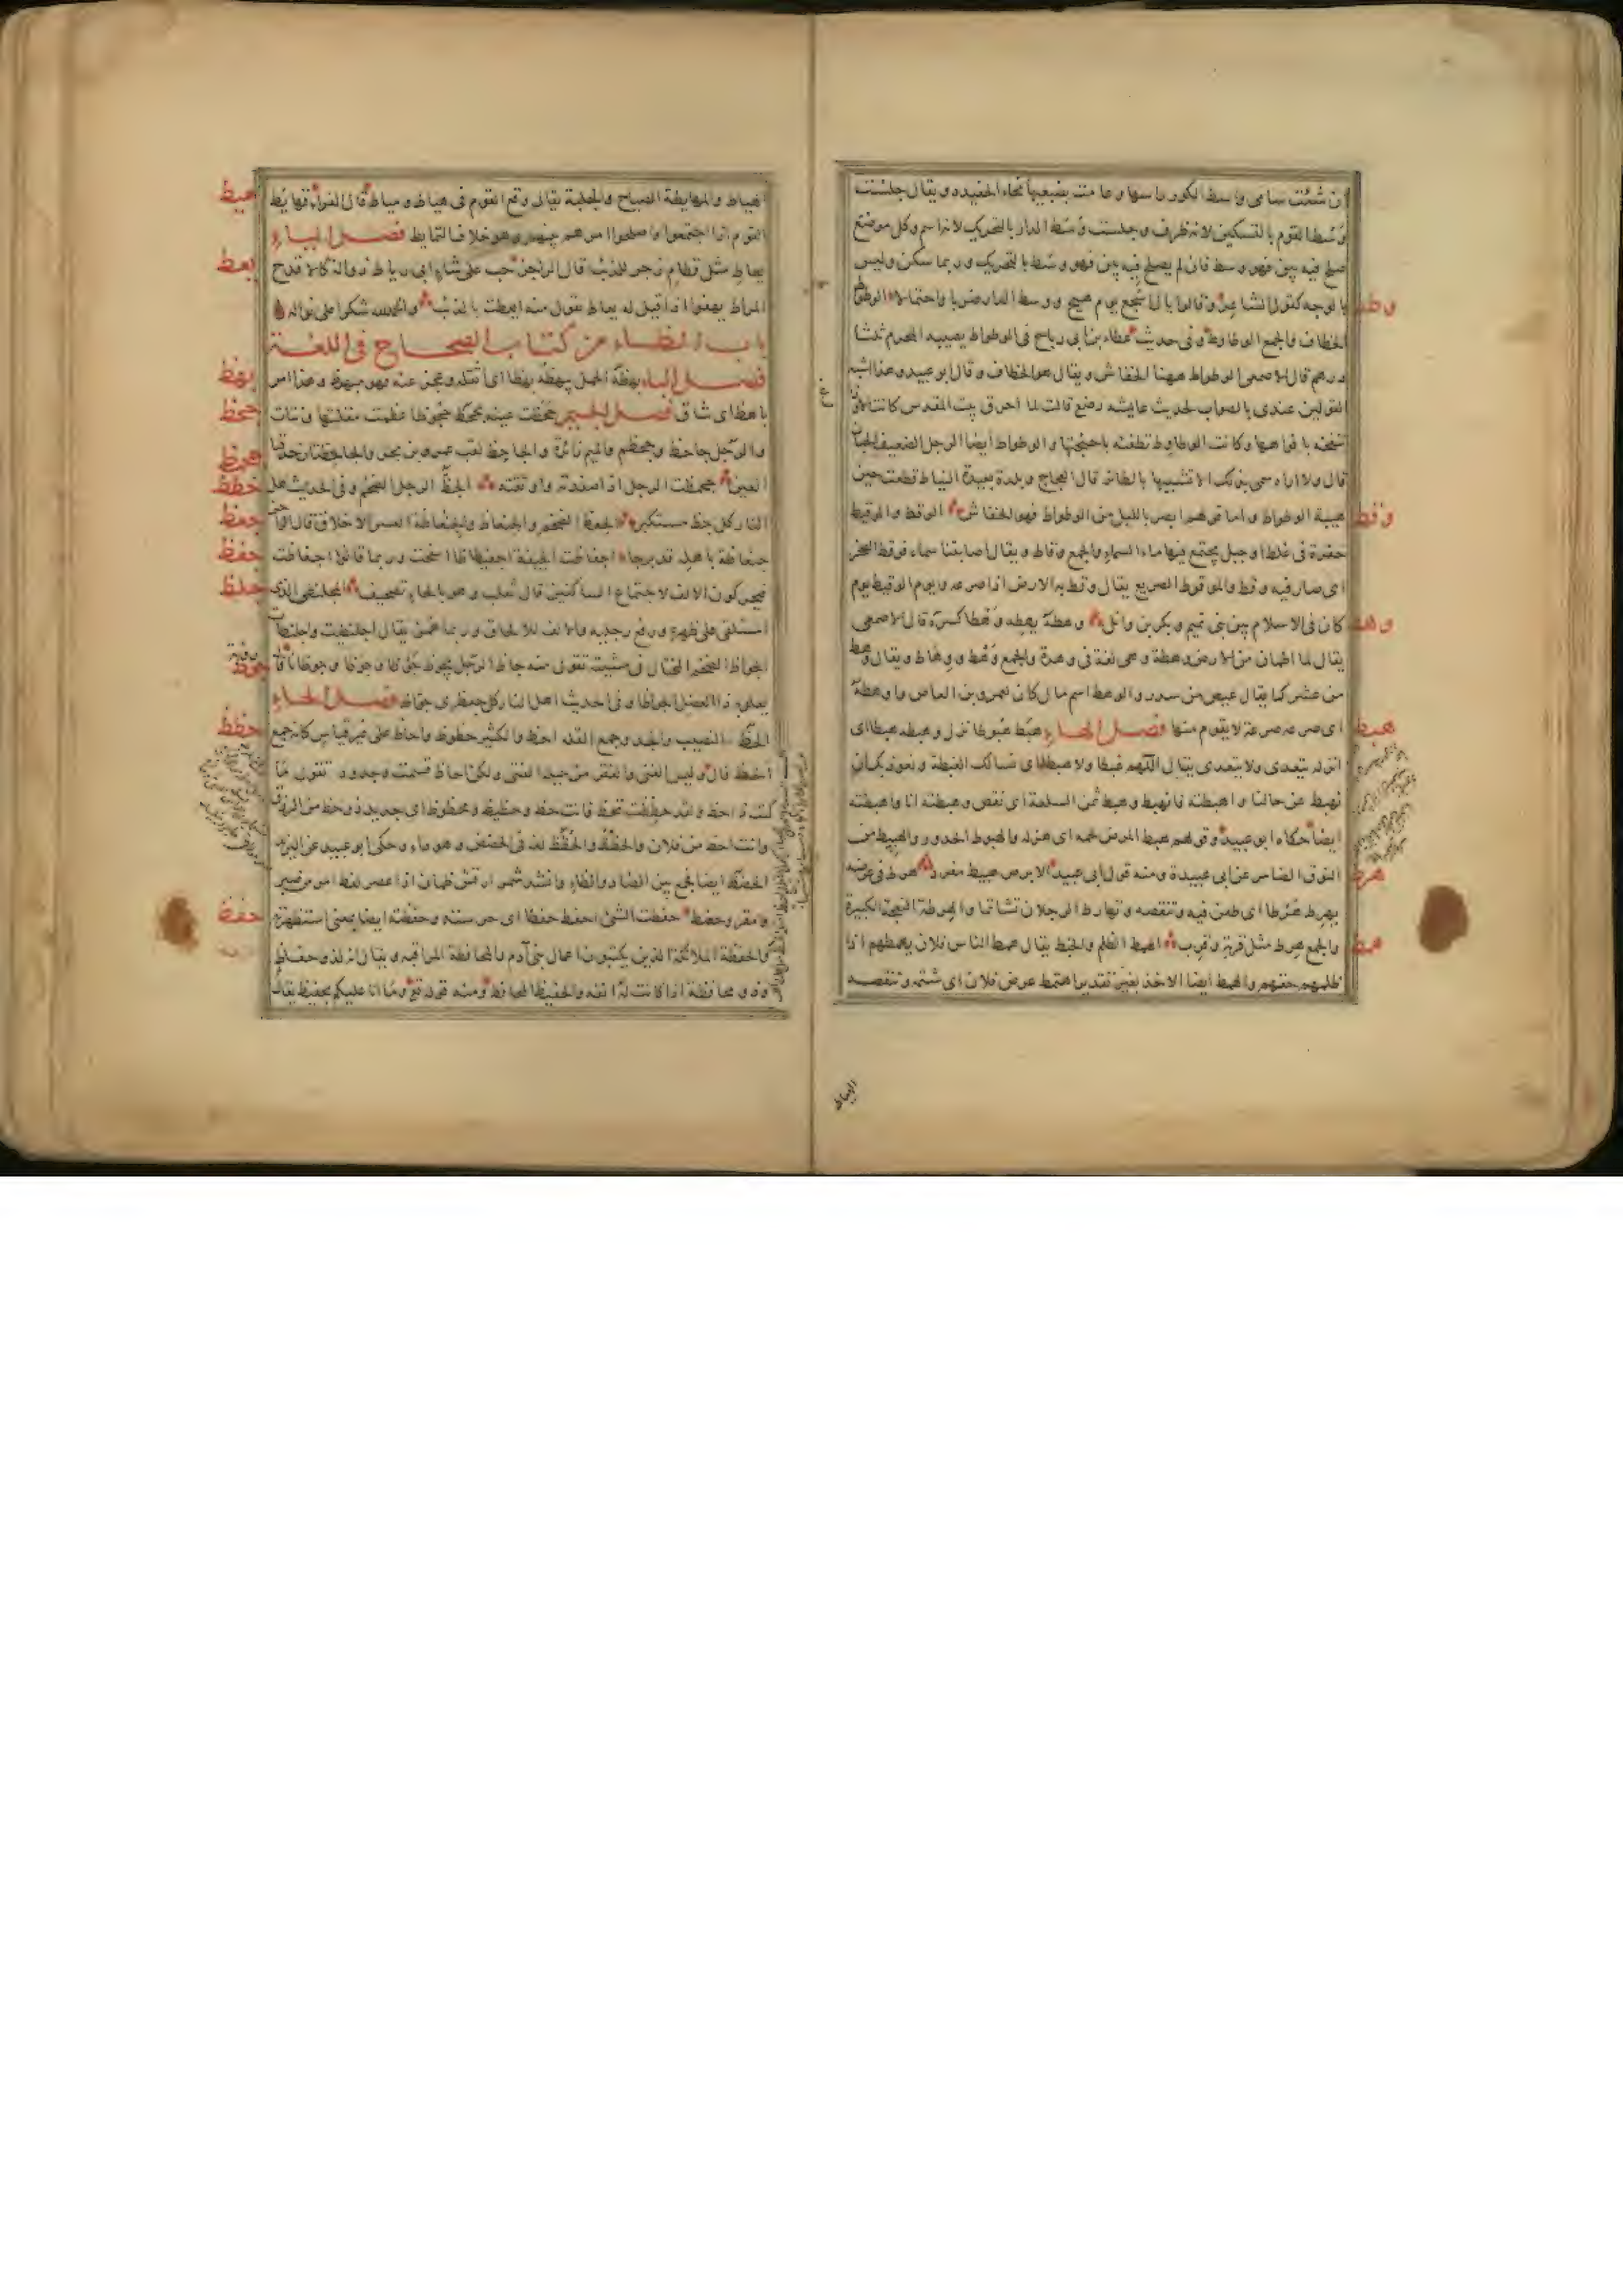 ان شئت سامى واسط الكور راسها وعامت بضبعيها نجاء الخفيدد ويقال جلست
وسط القوم بالتسكين لانه ظرف وجلست وسط الدار بالتحريك لانه اسم وكل موضع
صلح فيه بين فهو وسط فان لم يصلح فيه بين فهو وسط بالتحريك وربما سكن وليس
وطط
بالوجه كقول الشاعر وقالوا يال اشجع يوم هيج ووسط الدار ضربا واحتمالا الوطواط
الخطاف والجمع الوطاوط وفى حديث عطاء بن ابى رباح فى الوطواط يصيبه المحرم ثلثا
درهم قال الاصمعى الوطواط ههنا الخفاش ويقال هو الخطاف وقال ابو عبيد وهذا اشبه
القولين عندى بالصواب لحديث عايشه رضع قالت لما احرق بيت المقدس كانت الاوزاغ
تنفخه بافواهها وكانت الوطاوط تطفئه باجنحتها والوطواط ايضا الرجل الضعيف الجبان
قال ولا اراه سمى بذلك الا تشبيها بالطائر قال العجاج وبلدة بعيدة النياط قطعت حين
وقط
هيبة الوطواط واما قولهم ابصر بالليل من الوطواط فهو الخفاش الوقط والوقيط
حفرة فى غلظ او جبل يجتمع فيها ماء السماء والجمع وقاط ويقال اصابتنا سماء فوقط الصخر
اى صار فيه وقط والموقوط الصريع يقال وقط به الارض اذا صرعه ويوم الوقيط يوم
وهط
كان فى الاسلام بين بنى تميم وبكر بن وائل وهطه يهطه وهطا كسره قال الاصمعى
يقال لما اطمان من الارض وهطة وهى لغة فى وهدة والجمع وهط ووهاط ويقال وهط
من عشر كما يقال عيص من سدر والوهط اسم مال كان لعمرو بن العاص واوهطه
هبط
اى صرعه صرعة لا يقوم منها فصل الهاء هبط هبوطا نزل وهبطه هبطا اى
انزله يتعدى ولا يتعدى يقال اللهم غبطا ولا هبطا اى نسالك الغبطة ونعوذ بك ان
نهبط عن حالنا واهبطته فانهبط وهبط ثمن السلعة اى نقص وهبطته انا واهبطته
ايضا حكاه ابو عبيد وقولهم هبط المرض لحمه اى هزله والهبوط الحدور والهبيط من
هرط
النوق الضامر عن ابى عبيدة ومنه قول ابى عبيد الابرص هبيط مفرد هرط فى عرضه
يهرط هرطا اى طعن فيه وتنقصه وتهارط الرجلان تشاتما والهرطة النعجة الكبيرة
همط
والجمع هرط مثل قربة وقرب الهمط الظلم والخبط يقال همط الناس فلان يهمطهم اذا
ظلمهم حقهم والهمط ايضا الاخذ بغير تقدير واهتمط عرض فلان اى شتمه وتنقصه
الهياط
هيط
الهياط والمهايطة الصياح والجلبة يقال وقع القوم فى هياط ومياط قال الفراء تهايط
القوم اذا اجتمعوا واصلحوا امرهم بينهم وهو خلاف التمايط فصل الياء
يعط
يعاط مثل قطام زجر للذئب قال الراجز صب على شاء ابى رياط ذوالة كالاقدح
المراط يهفوا اذا قيل له يعاط تقول منه ايعطت بالذئب والحمد لله شكرا على نواله
باب الظاء من كتاب الصحاح فى اللغة
بهظ
فصل الباء بهظه الحمل يبهظه بهظا اى اثقله وعجز عنه فهو مبهوظ وهذا امر
جحظ
باهظ اى شاق فصل الجيم جحظت عينه تجحظ جحوظا عظمت مقلتها ونتات
والرجل جاحظ وجحظم والميم زائدة والجاحظ لقب عمرو بن بحر والجاحظتان حدقتا
جظظ
العين جحمظت الرجل اذا صفدته واوثقته الجظ الرجل الضخم وفى الحديث اهل
جعظ
النار كل جظ مستكبر الجعظ الضخم والجنعاظ والجنعاظة العسر الاخلاق قال الراجز
جفظ
جنعاظة باهله قد برحا اجفاظت الجيفة اجفيظاظا انتفخت وربما قالوا اجفاظت
جلظ
فيحركون الالف لاجتماع الساكنين قال ثعلب وهو بالحاء تصحيف المجلنظى الذى
استلقى على ظهره ورفع رجليه والالف للالحاق وربما همز يقال اجلنظيت واجلنظات
جوظ
الجواظ الضخم المختال فى مشيته تقول منه جاظ الرجل يجوظ جوظا وجوظانا قال رؤبة
يعلو به ذا العضل الجواظا وفى الحديث اهل النار كل جعظرى جواظ فصل الحاء
حظظ
الحظ النصيب والجد وجمع القلة احظ والكثير حظوظ واحاظ على غير قياس كانه جمع
احظ قال وليس الغنى والفقر من حيلة الفتى ولكن احاظ قسمت وجدود تقول ما
كنت ذا حظ ولقد حظظت تحظ فانت حظ وحظيظ ومحظوظ اى جديد ذو حظ من الرزق
وانت احظ من فلان والحظظ والحظظ لغة فى الحضض وهو دواء وحكى ابو عبيد عن اليزيدى
الحضظ ايضا يجمع بين الضاد والظاء وانشد شمر ارقش ظمآن اذا عصر لفظ امر من صبر
حفظ
ومقر وحضظ حفظت الشئ احفظ حفظا اى حرسته وحفظته ايضا بمعنى استظهرته
والحفظة الملائكة الذين يكتبون اعمال بنى آدم والمحافظة المراقبه ويقال انه لذو حفاظ
وذو محافظة اذا كانت له انفه والحفيظ المحافظ ومنه قوله تع وما انا عليكم بحفيظ يقال